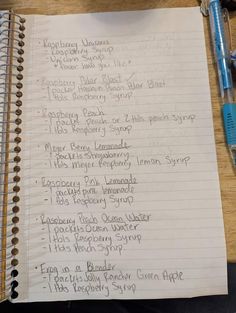 Raspberry Unicorn
Raspberry Syrup
Unicorn Syrup
*Flavor how you like*
Raspberry Polar Blast
1 packet Hawaiian Punch Polar Blast
1 tbls Raspberry Syrup
Raspberry Peach
1 packet Peach or 2 tbls peach Syrup
1 tbls Raspberry Syrup
Meyer Berry Lemonade
1 packets Strawberry
1 tbls Meyer Raspberry Lemon Syrup
Raspberry Pink Lemonade
1 packet pink lemonade
1 tbls Raspberry Syrup
Raspberry Peach Ocean Water
- 1 packets Ocean Water
- 1 tbls Raspberry Syrup
- 1 tbls Peach Syrup
Frog in a Blender
- 1 packets Jolly Rancher Green Apple
- 1 tbls Raspberry Syrup